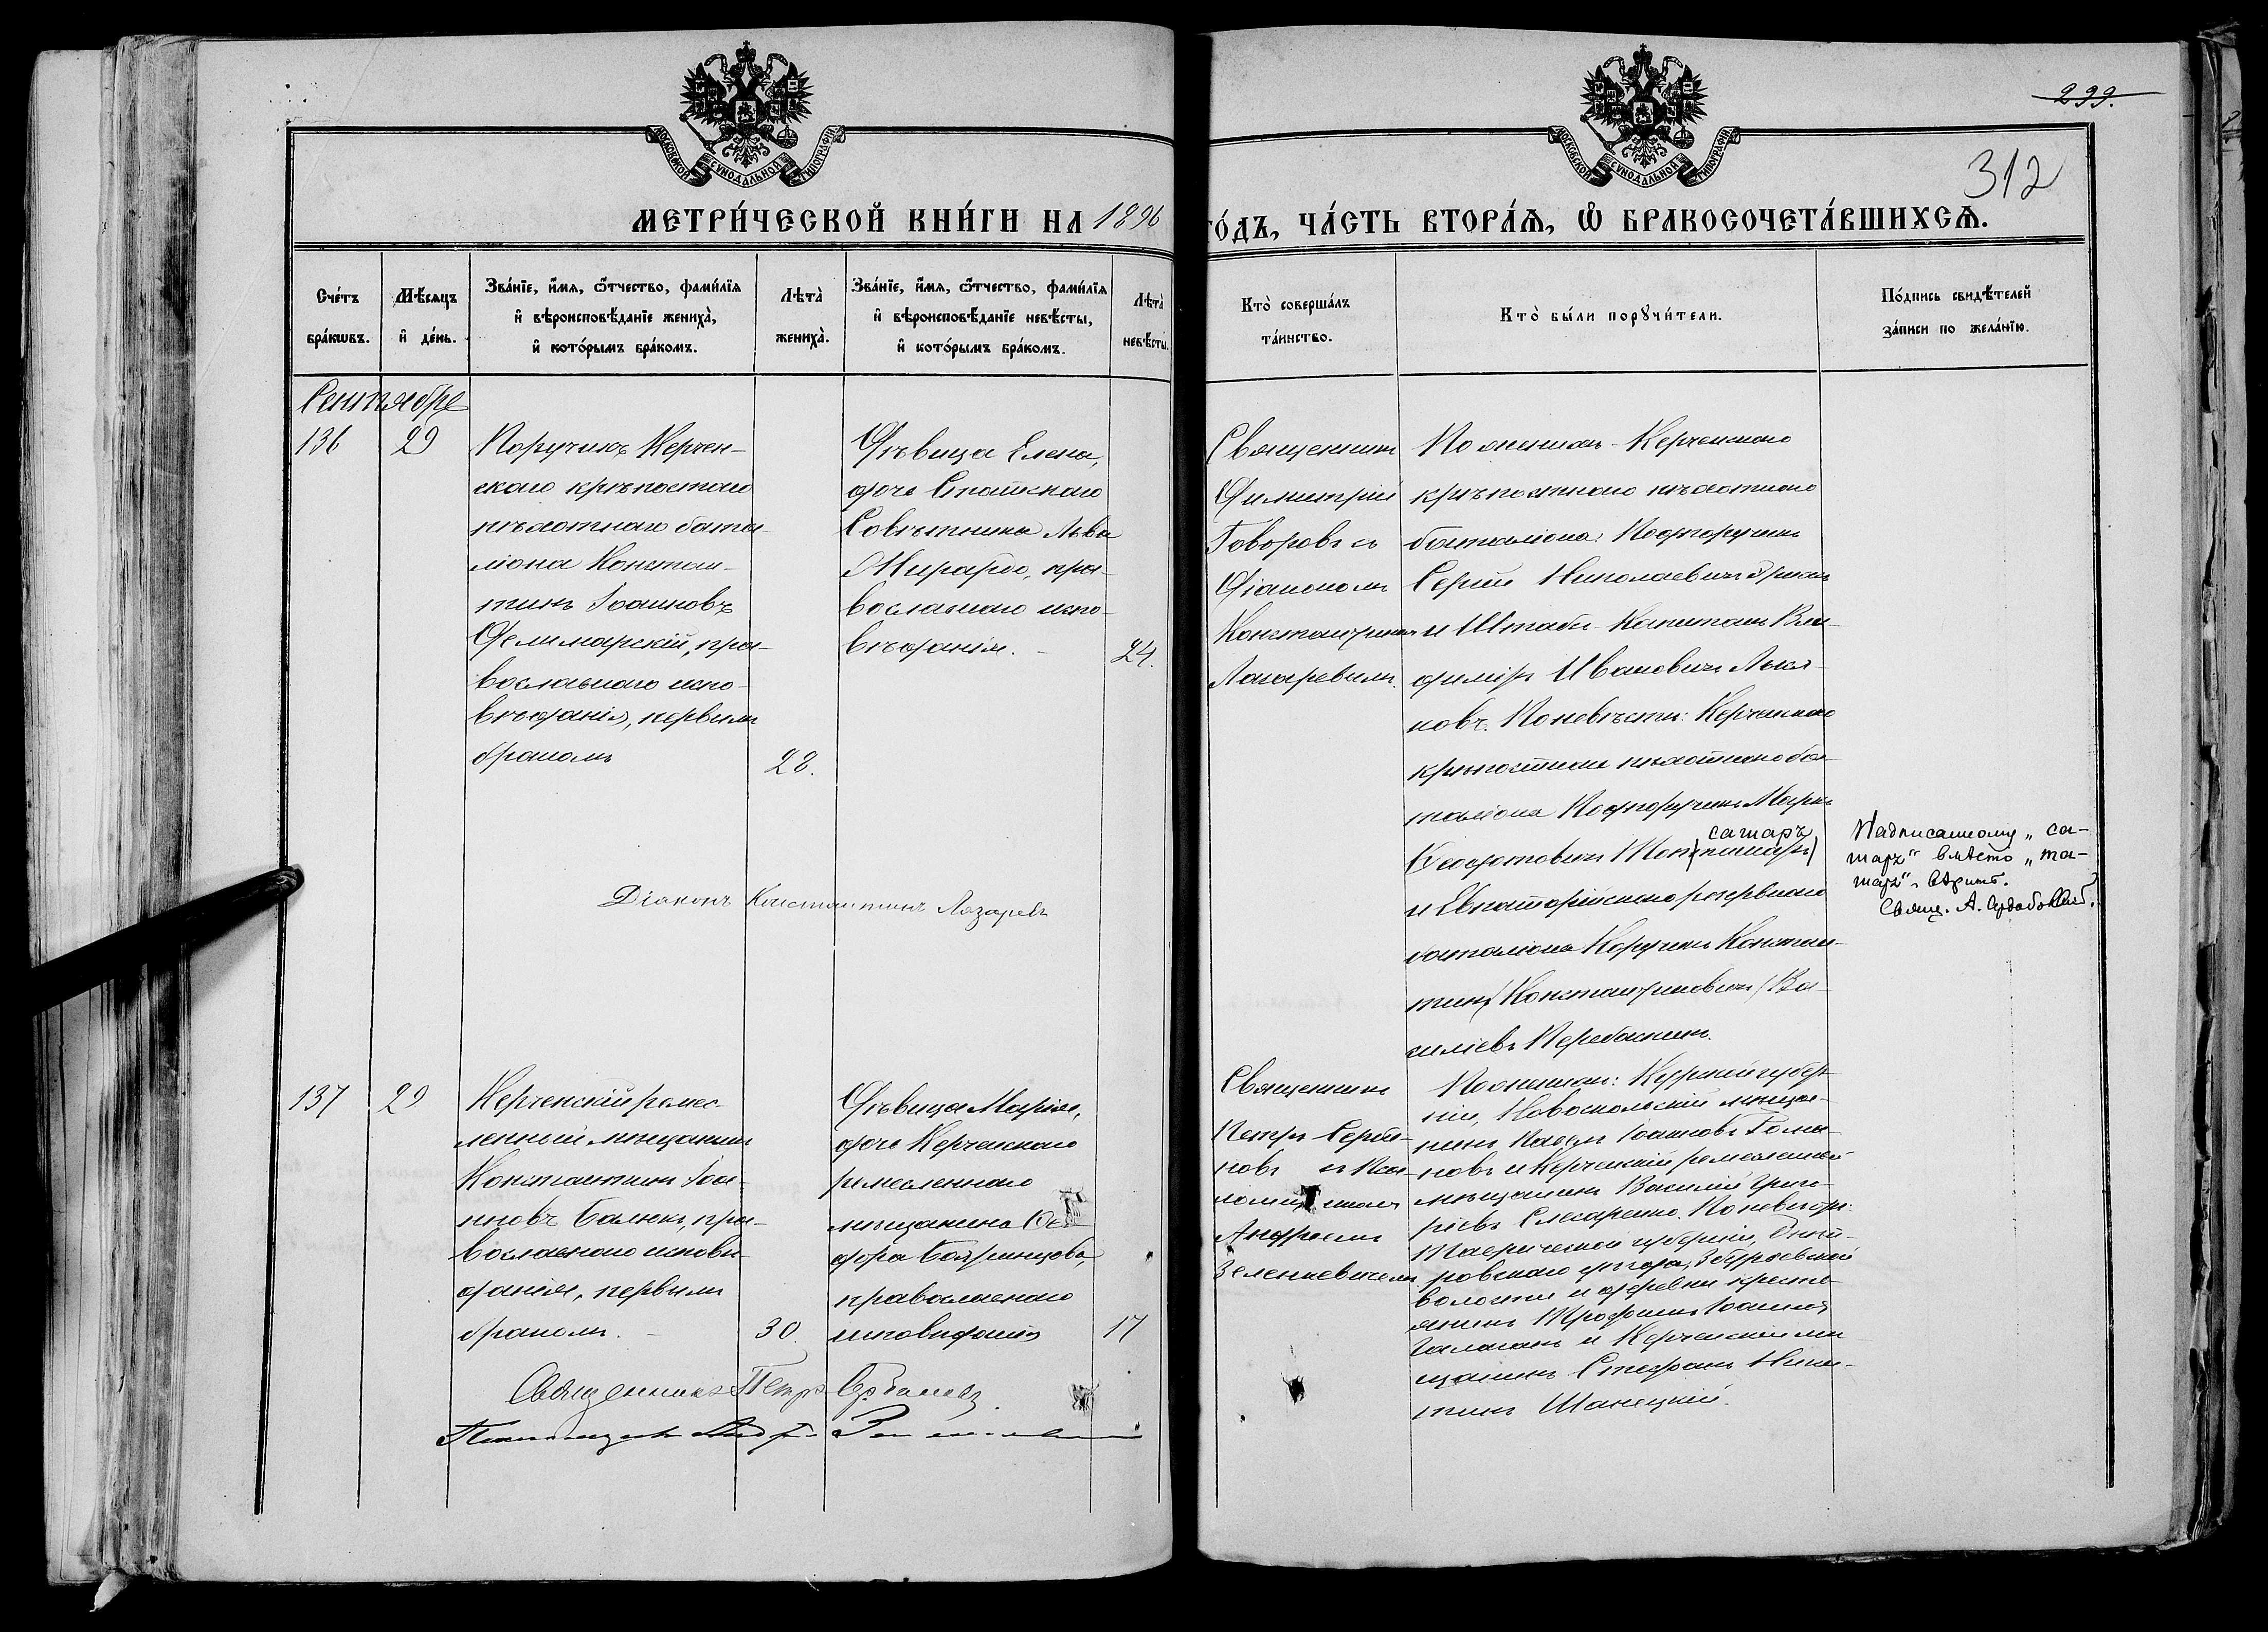 299.
312
МОСКОВСКОЙ СѴНОДАЛЬНОЙ ТИПОГРАФІИ
МОСКОВСКОЙ СѴНОДАЛЬНОЙ ТИПОГРАФІИ
МЕТРИ́ЧЕСКОЙ КНИ́ГИ НА 1896
ГО́ДЪ, ЧА́СТЬ ВТОРА́Ѧ, Ѽ БРАКОСОЧЕТА́ВШИХСѦ.
Сче́тъ
бра́кѡвъ.
Мѣ́сяцъ
и҆ де́нь.
Зва́нїе, и҆́мѧ, ѻ҆́тчество, фами́лїѧ
и҆ вѣроисповѣ́данїе жениха̀,
и҆ кото́рымъ бра́комъ.
Лѣта̀
жениха̀.
Зва́нїе, и҆́мѧ, ѻ҆́тчество, фами́лїѧ
и҆ вѣроисповѣ́данїе невѣ́сты,
и҆ кото́рымъ бра́комъ.
Лѣта̀
невѣ́сты.
Кто̀ соверша́лъ
та́инство.
Кто̀ бы́ли порꙋчи́тели.
По́дпись свидѣ́телей
за́писи по жела́нїю.
Сентябре
136
29
Поручикъ Керчен-
скаго крѣпостнаго
пѣхотнаго бата-
ліона Констан-
тинъ Іоанновъ
Делимарскій, пра-
вославнаго испо-
вѣданія, первымъ
бракомъ
28.
Дѣвица Елена,
дочь Статскаго
Совѣтника Льва
Мирабо, пра-
вославнаго испо-
вѣданія. -
24.
Священникъ
Димитрій
Говоровъ съ
Діакономъ
Константиномъ
Лазаревымъ.
По женихѣ: Керченскаго
крѣпостнаго пѣхотнаго
баталіона: Подпоручикъ
Сергій Николаевичъ
и Штабсъ-Капитанъ Вла-
диміръ Ивановичъ Лука-
новъ. По невѣстѣ: Керченскаго
крѣпостнаго пѣхотнаго ба-
таліона Подпоручикъ Маркъ
сатаръ
Ѳеодотовичъ
и Евпаторійскаго резервнаго
баталіона Поручикъ Констан-
тинъ (Константиновичъ) Ва-
силіевъ
Надписанному „са-
таръ“ вмѣсто „та-
таръ“ - вѣрить.
Свящ. А.
Діаконъ Константинъ Лазаревъ
137
29
Керченскій ремес-
ленный мѣщанинъ
Константинъ Іоа-
нновъ Балюкъ, пра-
вославнаго исповѣ-
данія, первымъ
бракомъ. -
30.
Дѣвица Марія,
дочь Керченскаго
ремесленнаго
мѣщанина Ѳео-
дора Бояринцова,
православнаго
исповѣданія
17
Священникъ
Петръ Серба-
новъ съ Пса-
ломщикомъ
Андреемъ
Зеленкевичемъ.
По женихѣ: Курской губер-
ніи, Новооскольскій мѣща-
нинъ Павелъ Іоанновъ Гома-
новъ и Керченскій ремесленный
мѣщанинъ Василій Григо-
ріевъ Слесаренко. По невѣстѣ:
Таврической губерніи, Днѣп-
ровскаго уѣзда, Збурьевской
волости и деревни кресть-
янинъ Трофимъ Іоанновъ
Галаганъ и Керченскій мѣ-
щанинъ Стефанъ Ники-
тинъ Шанецкій.
Священникъ Петръ Сербановъ.